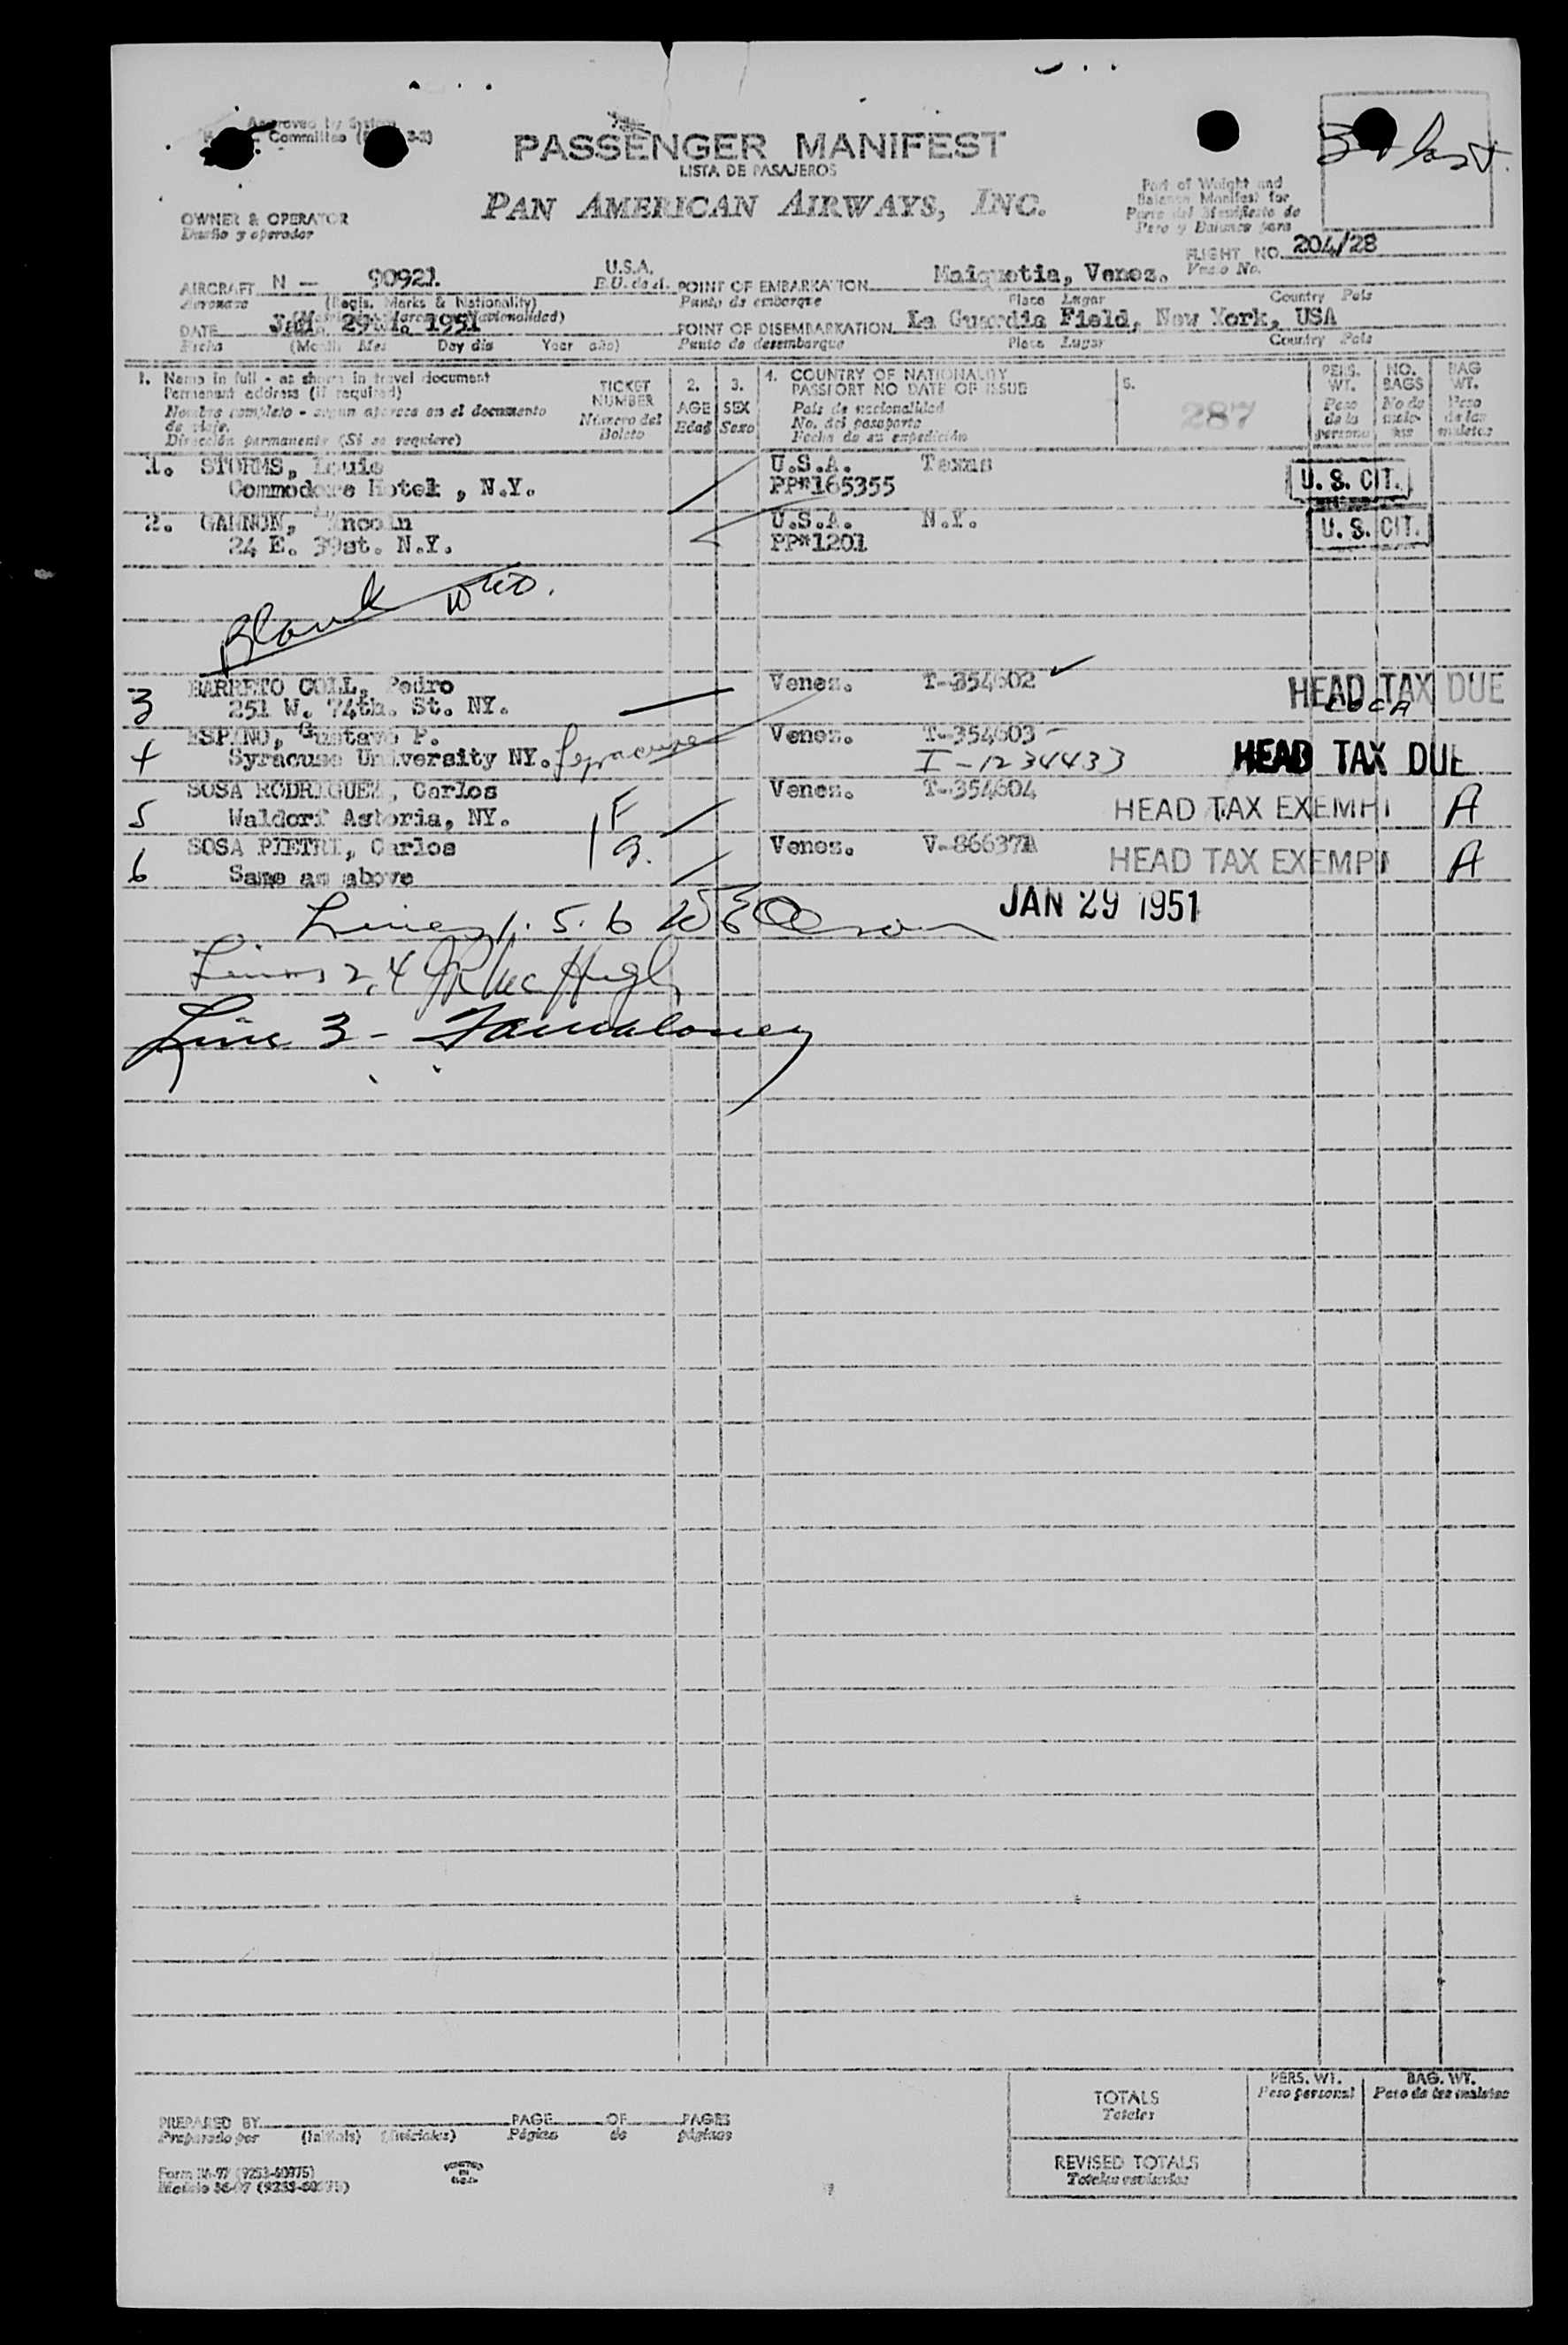 Approved by
Committee
PASSENGER MANIFEST
LISTA DE PASAJEROS
PAN AMERICAN AIRWAYS, INC.
Part of Weight and
Balance Manifest for
Parte del Manifiesto de
Peso y Balance para
OWNER & OPERATOR
Dueño y operador
FLIGHT NO. 204/28
Vuelo No.
AIRCRAFT N - 90921 U.S.A. POINT OF EMBARKATION Maiquetia, Venez.
Aeronave (Regis. Marks & Nationality) E.U. de A. Punto de embarque Place Lugar Country País
DATE Jan. 29 1951 POINT OF DISEMBARKATION La Guardia Field, New York, USA
Fecha (Month Mes Day día Year año) Punto de desembarque Place Lugar Country País
1. Name in full - as shown in travel document
Permanent address (if required)
Nombre completo - según aparece en el documento
de viaje.
Dirección permanente (Si se requiere)
TICKET
NUMBER
Número del
Boleto
2.
AGE
Edad
3.
SEX
Sexo
4. COUNTRY OF NATIONALITY
PASSPORT NO DATE OF ISSUE
País de nacionalidad
No. del pasaporte
Fecha de su expedición
5.
287
PERS.
WT.
Peso
de la
persona
NO.
BAGS
No de
male-
tas
BAG
WT.
Peso
de las
maletas
1. STORMS, Louis U.S.A. Texas
Commodore Hotel , N.Y. PP#165355 U. S. CIT.
2. GANNON, Lincoln U.S.A. N.Y.
24 E. 39st. N.Y. PP#1201 U. S. CIT.
Blank
3 BARRETO COLL, Pedro Venez. T-354602 HEAD TAX DUE
251 W. 74th. St. NY.
4 ESPINO, Gustavo P. Venez. T-354603
Syracuse University NY. Syracuse I-1234433 HEAD TAX DUE
5 SOSA RODRIGUEZ, Carlos Venez. T-354604
Waldorf Astoria, NY. F HEAD TAX EXEMPT A
6 SOSA PIETRI, Carlos Venez. V-86637A
Same as above HEAD TAX EXEMPT A
Lines 1. 5. 6 JAN 29 1951
Lines 2, 4 McHugh
Line 3 -
TOTALS
Totales
PERS. WT.
Peso personal
BAG. WT.
Peso de las maletas
PREPARED BY PAGE OF PAGES
Preparado por (Initials) (Iniciales) Página de páginas
REVISED TOTALS
Totales revisados
PRINTED
IN
U.S.A.